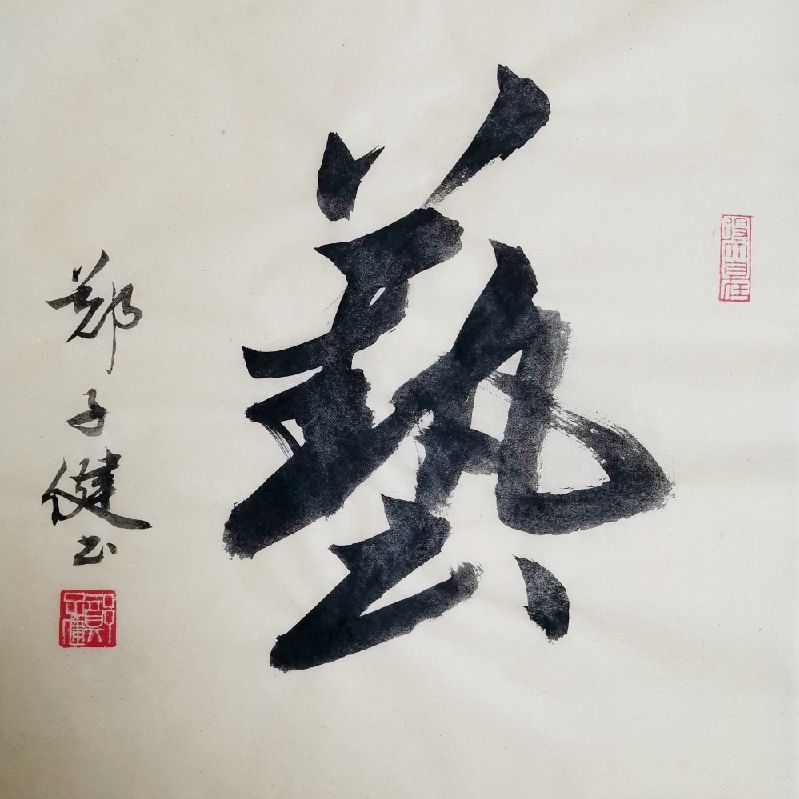 藝
郑子健书